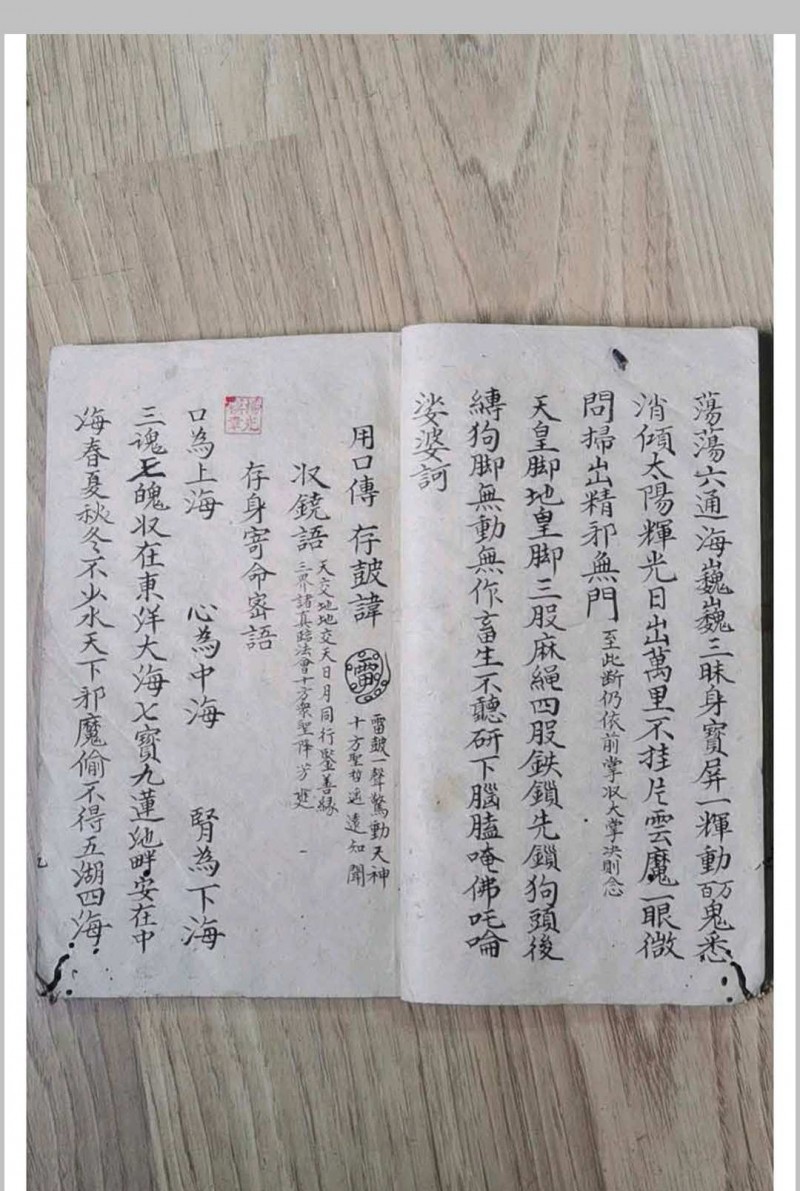 蕩蕩六通海巍巍三昧身寶屏一輝動百万鬼悉
消傾太陽輝光日出萬里不挂片雲魔一眼微
問掃出精邪無門至此断仍依前掌収大掌决則念
天皇脚地皇脚三股麻繩四股鉄鎖先鎖狗頭後
縛狗脚無動無作畜生不聽研下腦膸唵佛吒唵
娑婆訶
用口傳 存皷諱 雷 雷皷一聲驚動天神
十方聖哲遙遠知聞
収鐃語 天交地地交天日月同行鑒善緣
三界諸真臨法會十方衆聖降芳筵
存身寄命密語
口為上海 心為中海 腎為下海
三魂七魄収在東洋大海七寶九蓮池畔安在中
海春夏秋冬不少水天下邪魔偷不得五湖四海